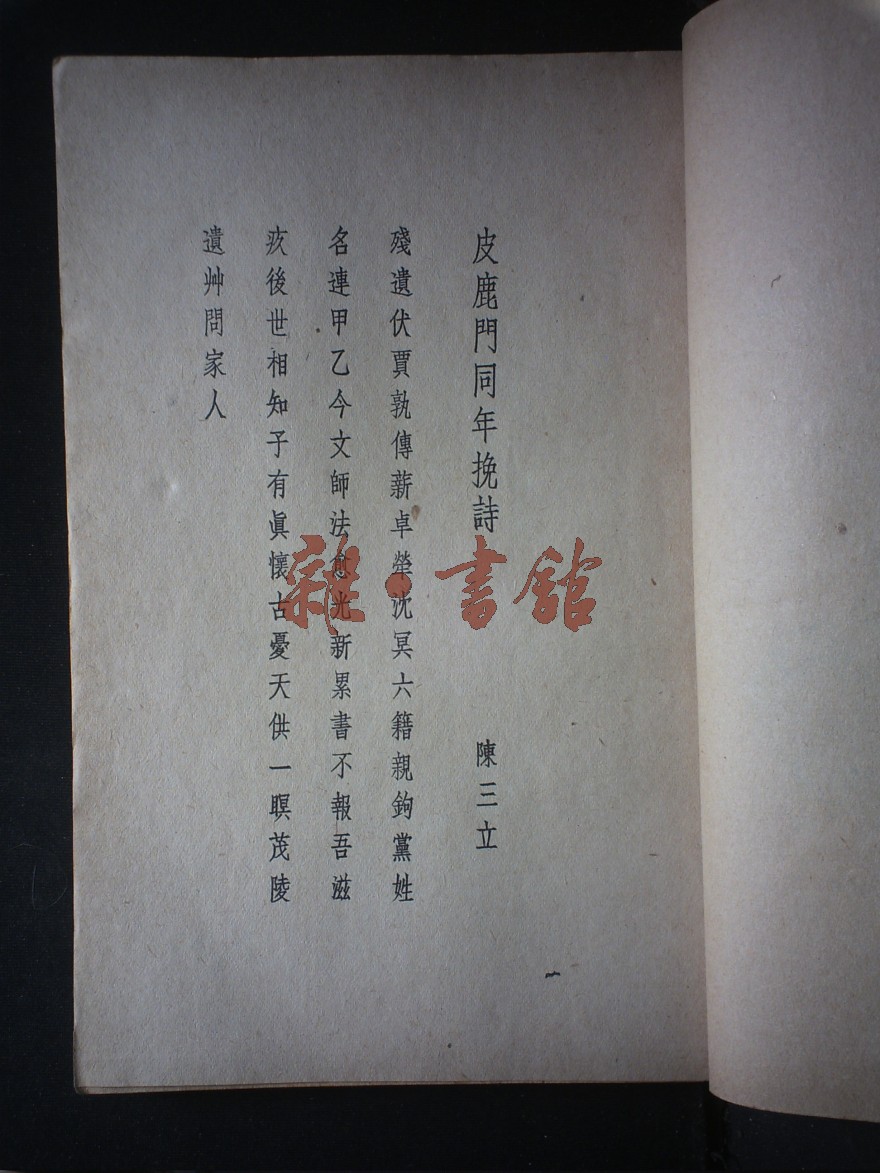 皮鹿門同年挽詩
陳三立
殘遺伏賈孰傳薪卓犖沈冥六籍親鉤黨姓
名連甲乙今文師法愈光新累書不報吾滋
疚後世相知子有眞懷古憂天供一暝茂陵
遺艸問家人
雜·書館